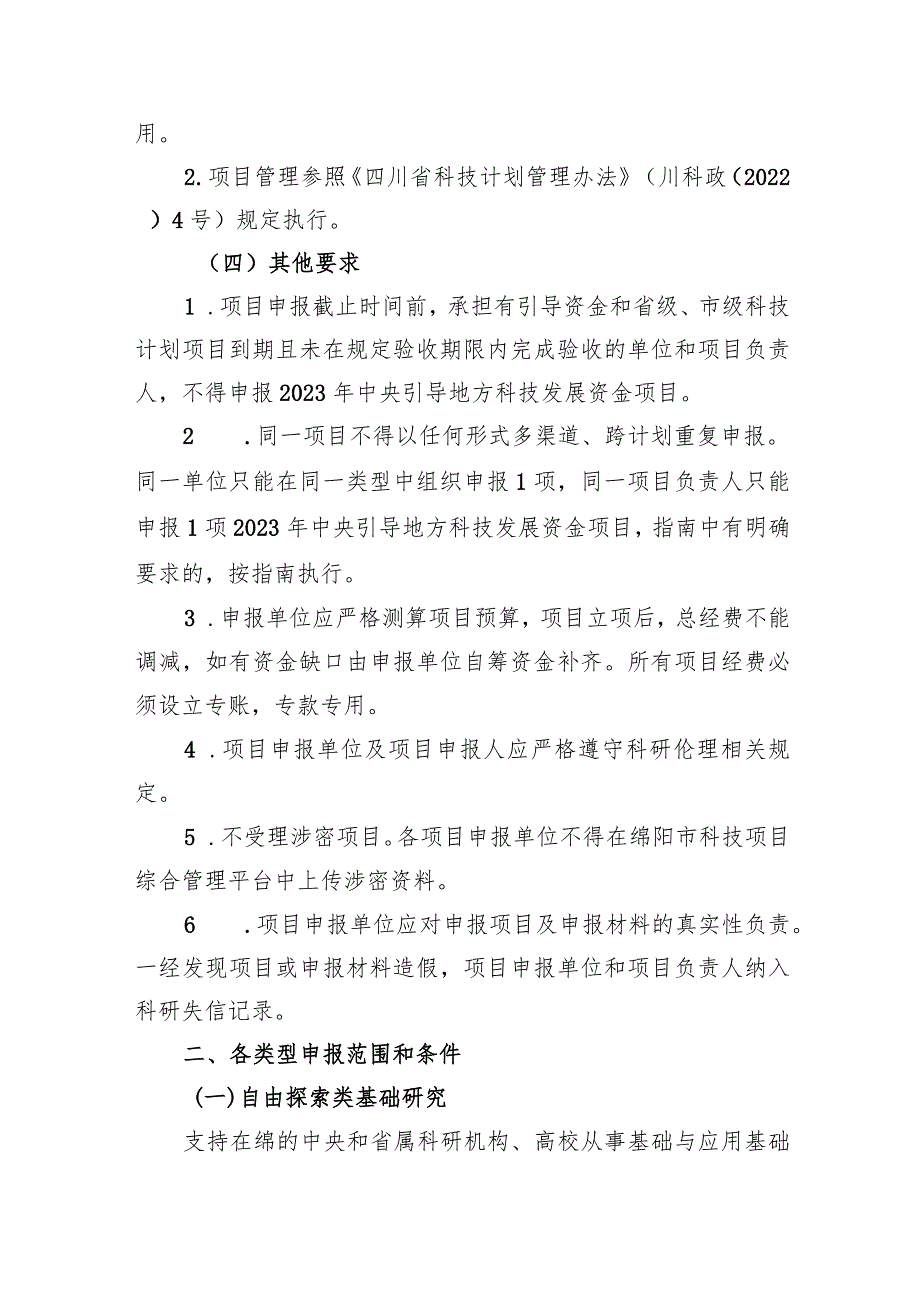 用。
2. 项目管理参照《四川省科技计划管理办法》（川科政（2022
）4 号）规定执行。
（四）其他要求
1 .项目申报截止时间前，承担有引导资金和省级、市级科技
计划项目到期且未在规定验收期限内完成验收的单位和项目负责
人，不得申报 2023 年中央引导地方科技发展资金项目。
2 .同一项目不得以任何形式多渠道、跨计划重复申报。
同一单位只能在同一类型中组织申报 1 项，同一项目负责人只能
申报 1 项 2023 年中央引导地方科技发展资金项目，指南中有明确
要求的，按指南执行。
3 .申报单位应严格测算项目预算，项目立项后，总经费不能
调减，如有资金缺口由申报单位自筹资金补齐。所有项目经费必
须设立专账，专款专用。
4 .项目申报单位及项目申报人应严格遵守科研伦理相关规
定。
5 .不受理涉密项目。各项目申报单位不得在绵阳市科技项目
综合管理平台中上传涉密资料。
6 .项目申报单位应对申报项目及申报材料的真实性负责。
一经发现项目或申报材料造假，项目申报单位和项目负责人纳入
科研失信记录。
二、各类型申报范围和条件
(一)自由探索类基础研究
支持在绵的中央和省属科研机构、高校从事基础与应用基础